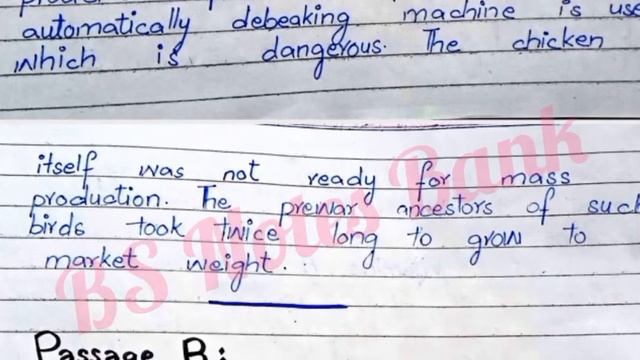 automatically debeaking machine is use
which is dangerous. The chicken
itself was not ready for mass
production. The prewar ancestors of such
birds took twice long to grow to
market weight.
BS Notes Bank
Passage B: